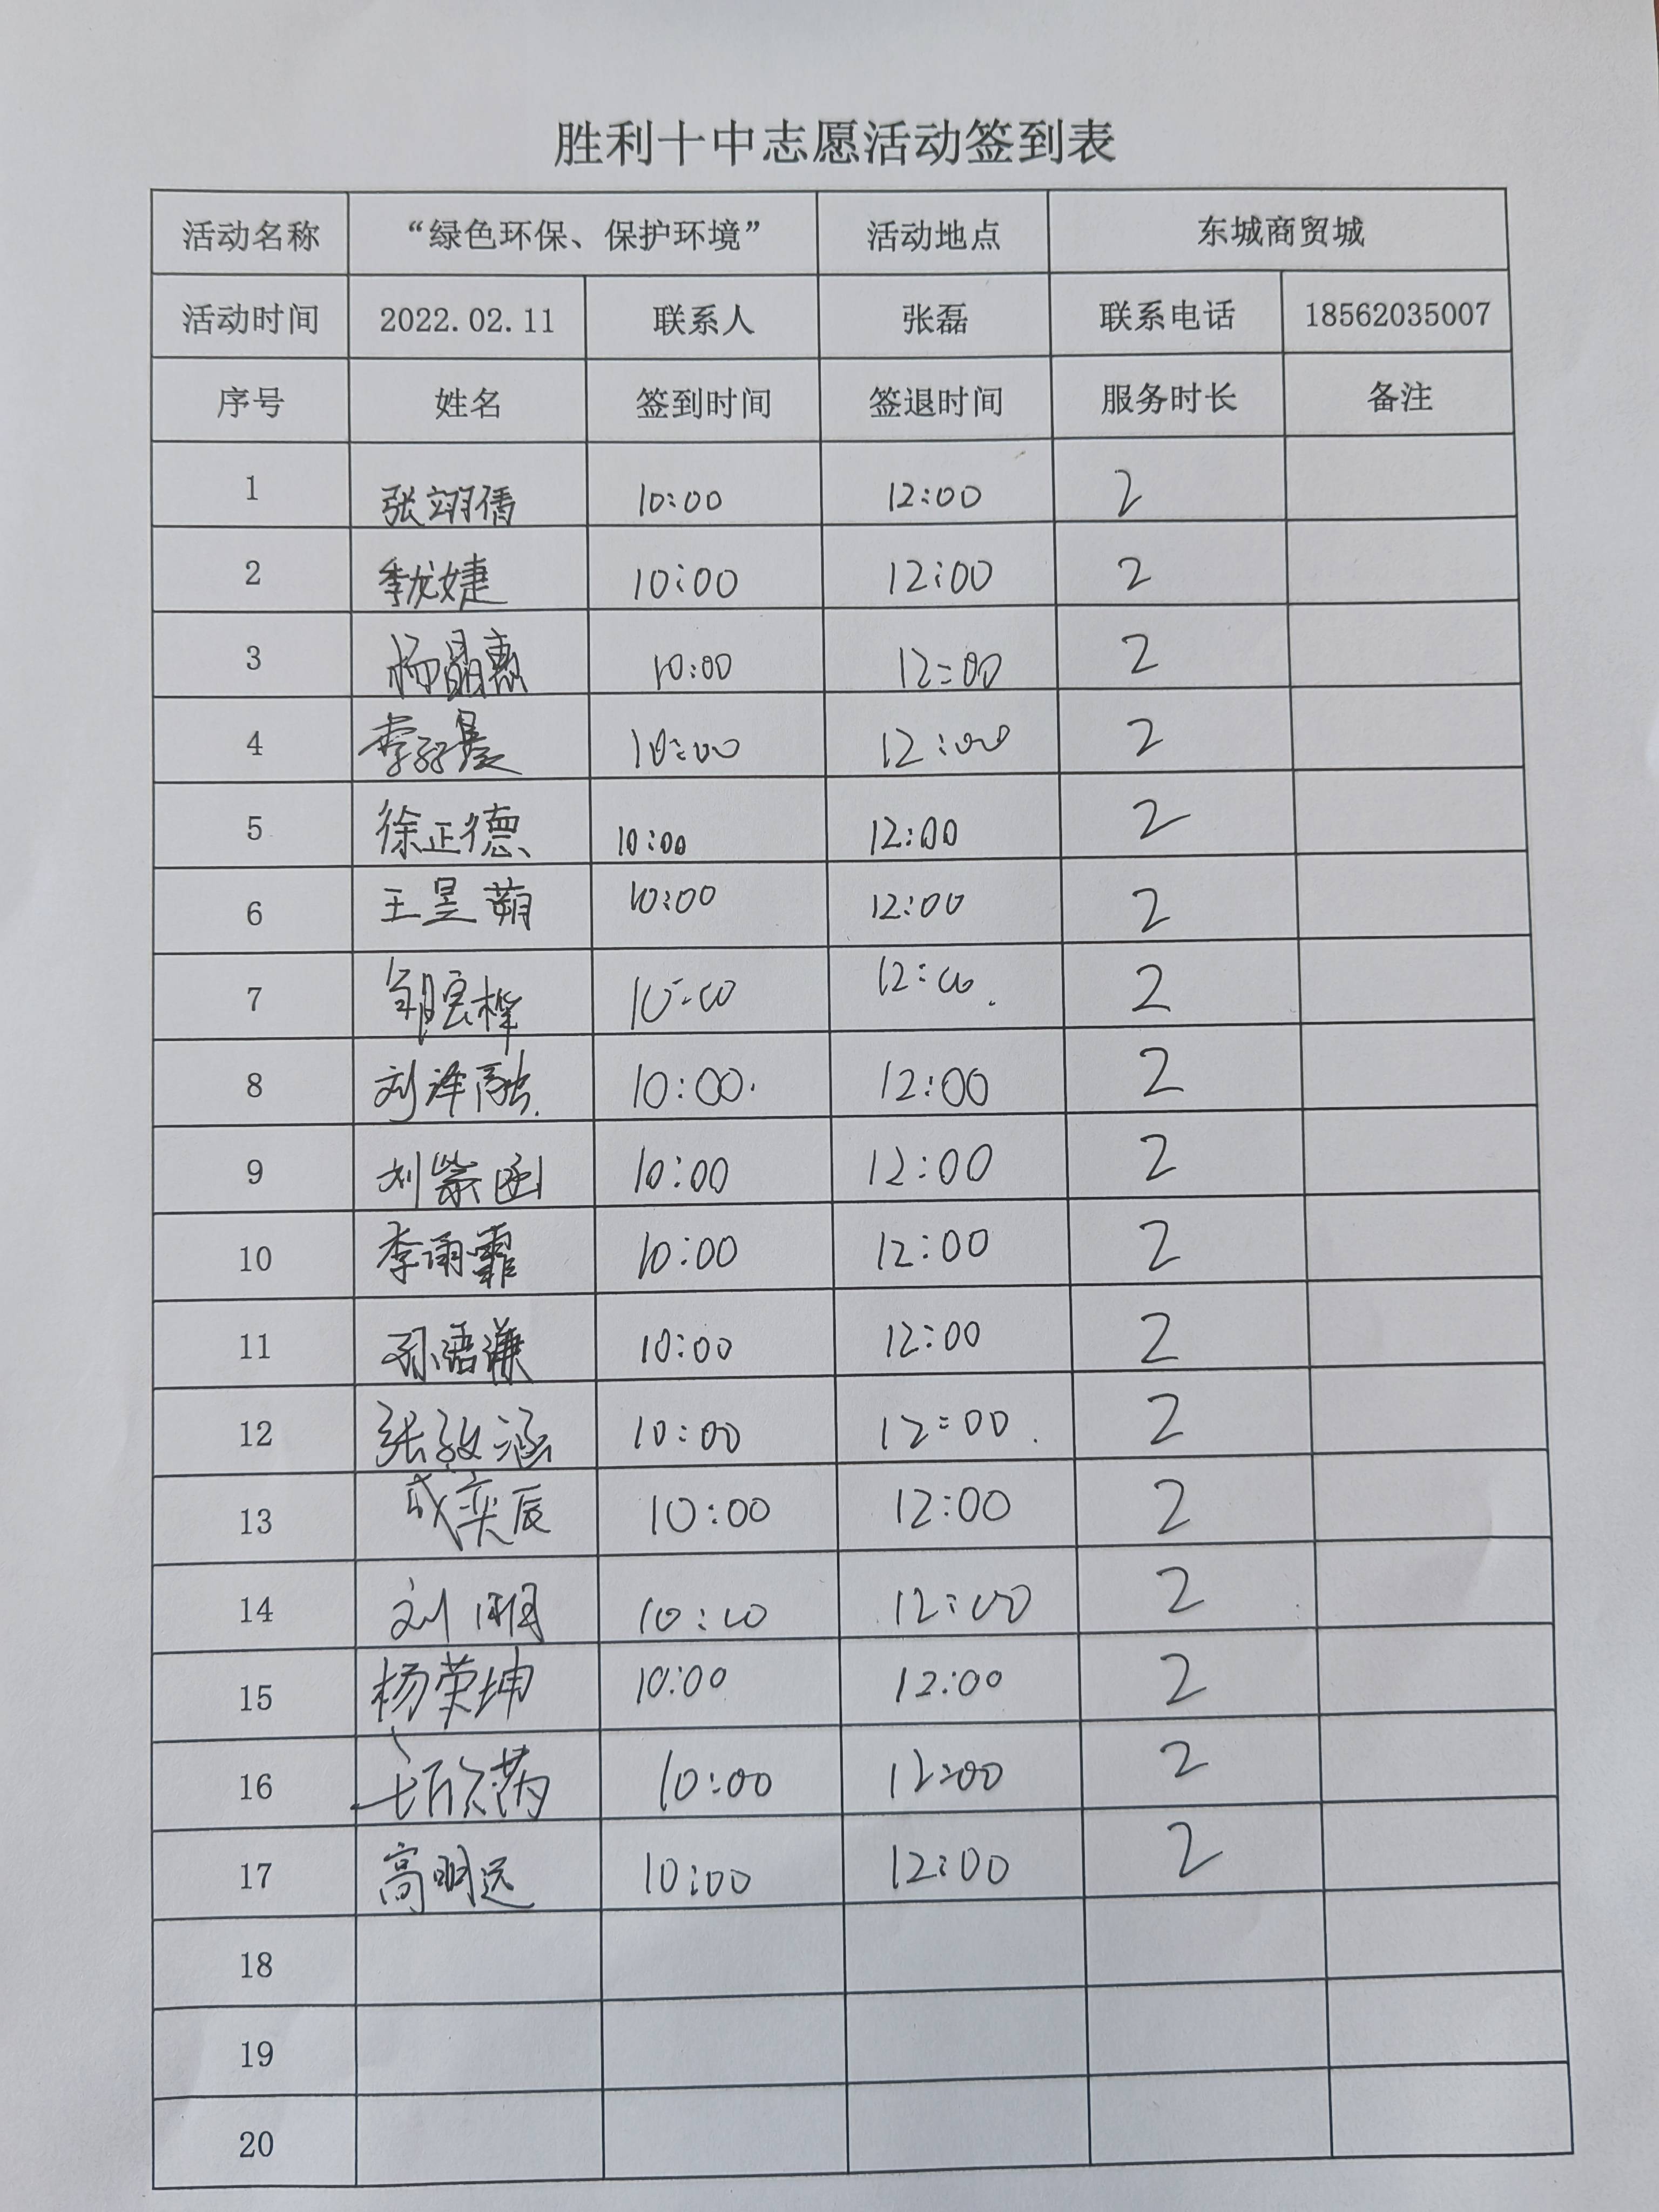 胜利十中志愿活动签到表
活动名称 “绿色环保、保护环境” 活动地点 东城商贸城
活动时间 2022.02.11 联系人 张磊 联系电话 18562035007
序号 姓名 签到时间 签退时间 服务时长 备注
1 张翊儒 10:00 12:00 2
2 李龙婕 10:00 12:00 2
3 杨晶惠 10:00 12:00 2
4 10:00 12:00 2
5 徐正德 10:00 12:00 2
6 王昱蒴 10:00 12:00 2
7 10:00 12:00 2
8 刘泽融 10:00 12:00 2
9 刘紫函 10:00 12:00 2
10 李雨霏 10:00 12:00 2
11 孙语谦 10:00 12:00 2
12 张敬涵 10:00 12:00 2
13 成奕辰 10:00 12:00 2
14 刘 10:00 12:00 2
15 杨荣坤 10:00 12:00 2
16 10:00 12:00 2
17 高明远 10:00 12:00 2
18
19
20